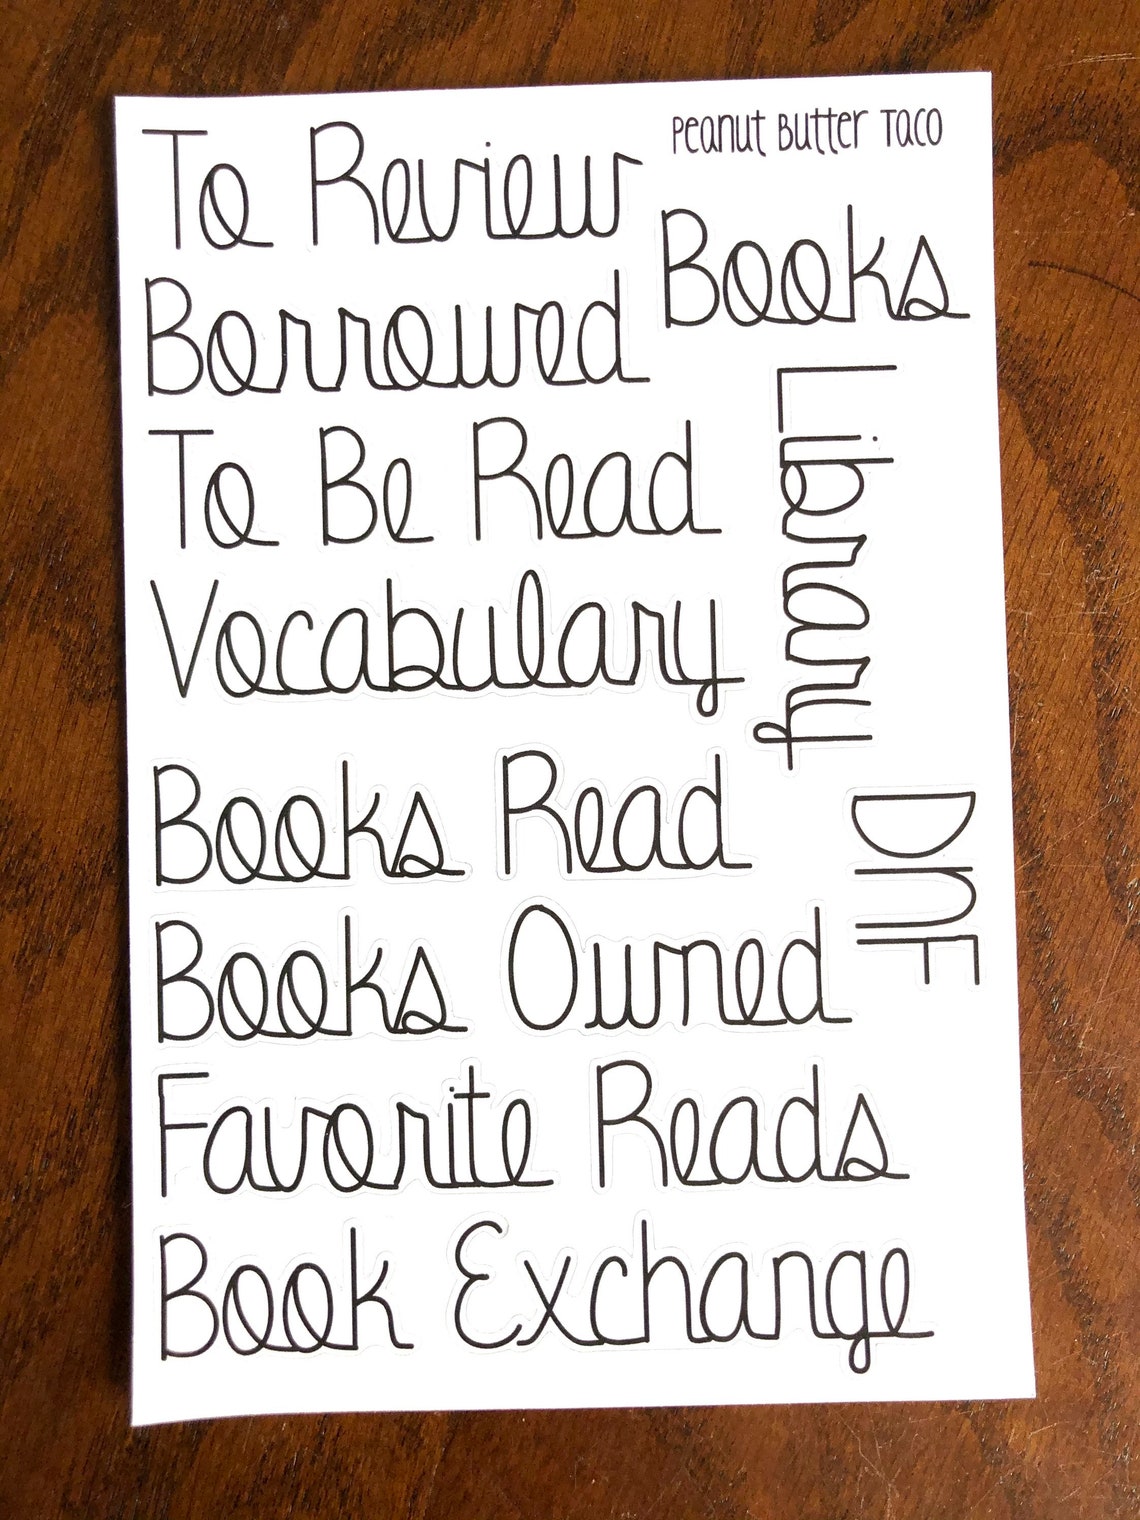 Peanut Butter Taco
To Review
Books
Borrowed
To Be Read
Library
Vocabulary
Books Read
DNF
Books Owned
Favorite Reads
Book Exchange